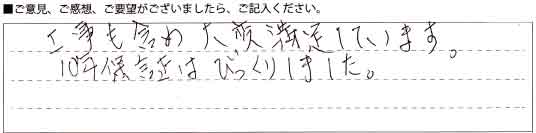 ■ご意見、ご感想、ご要望がございましたら、ご記入ください。
工事も含め大変満足しています。
10年保証はびっくりしました。